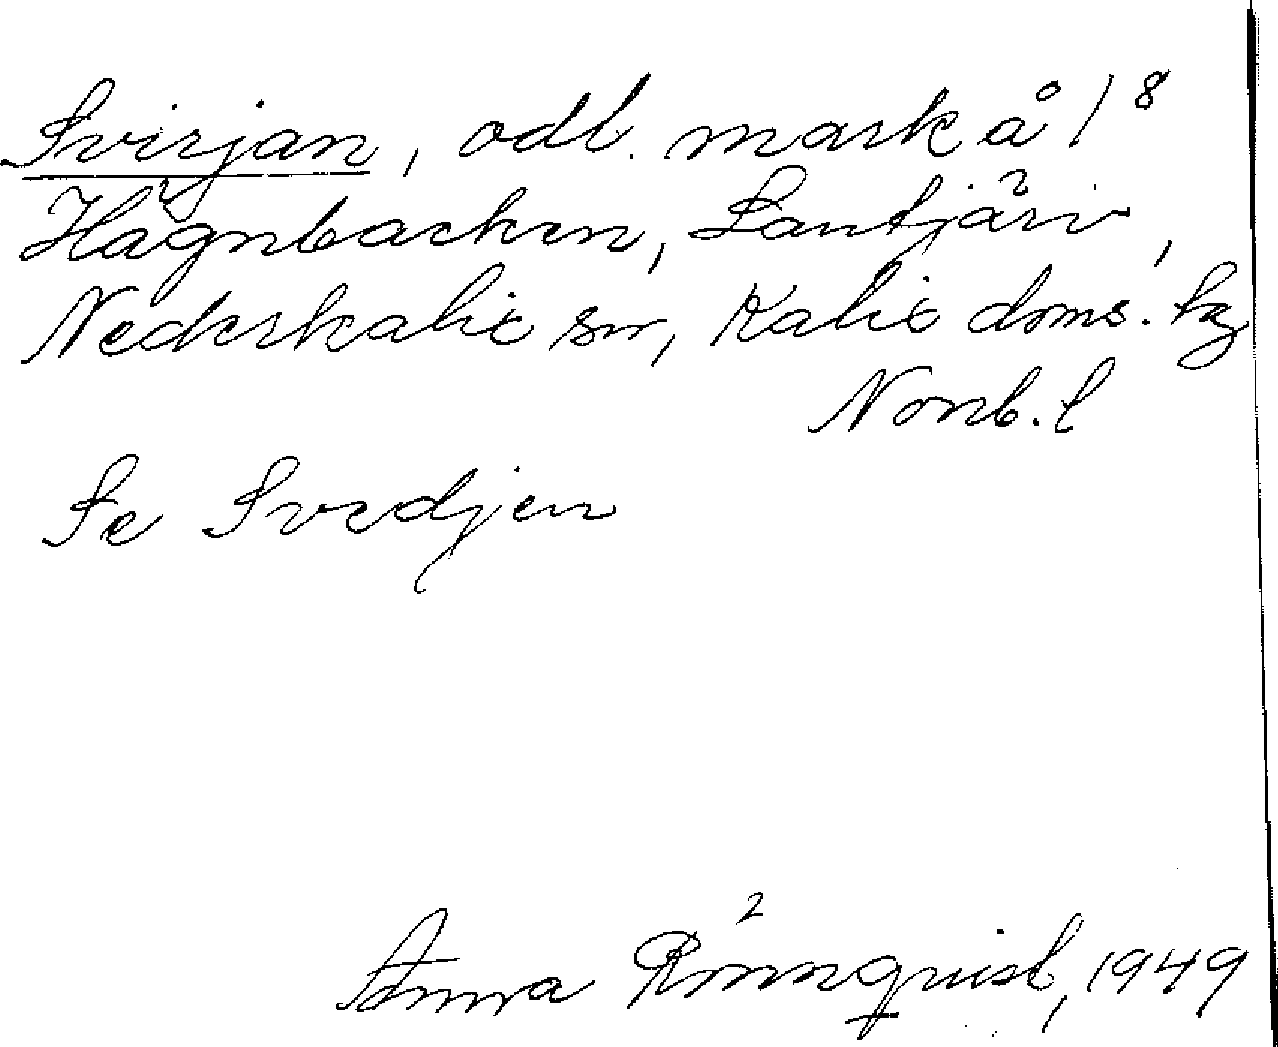 Svirjan, odl. mark å 1⁸
Hägnbacken, Lantjärv,
Nederkalix sn, Kalix doms. tg
Norrb. l
Se Svedjen
Anna Rönnquist, 1949